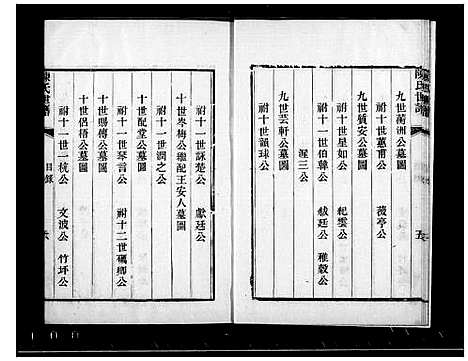 陳氏世譜
九世蘭洲公墓圖
祔十世蕙甫公 薇亭公
九世質安公墓圖
祔十世星如公 杞雲公
祔十一世伯韓公 紱廷公 稚穀公
渥三公
九世芸軒公墓圖
祔十世韻球公
五
祔十一世詠楚公 獻廷公
十世岑梅公繼配王安人墓圖
祔十一世潤之公
十世配堂公墓圖
祔十一世琴言公 祔十二世碼卿公
十世暘谷公墓圖
十世侶梧公墓圖
祔十一世一枕公 文波公 竹坪公
陳氏世譜
目錄
六